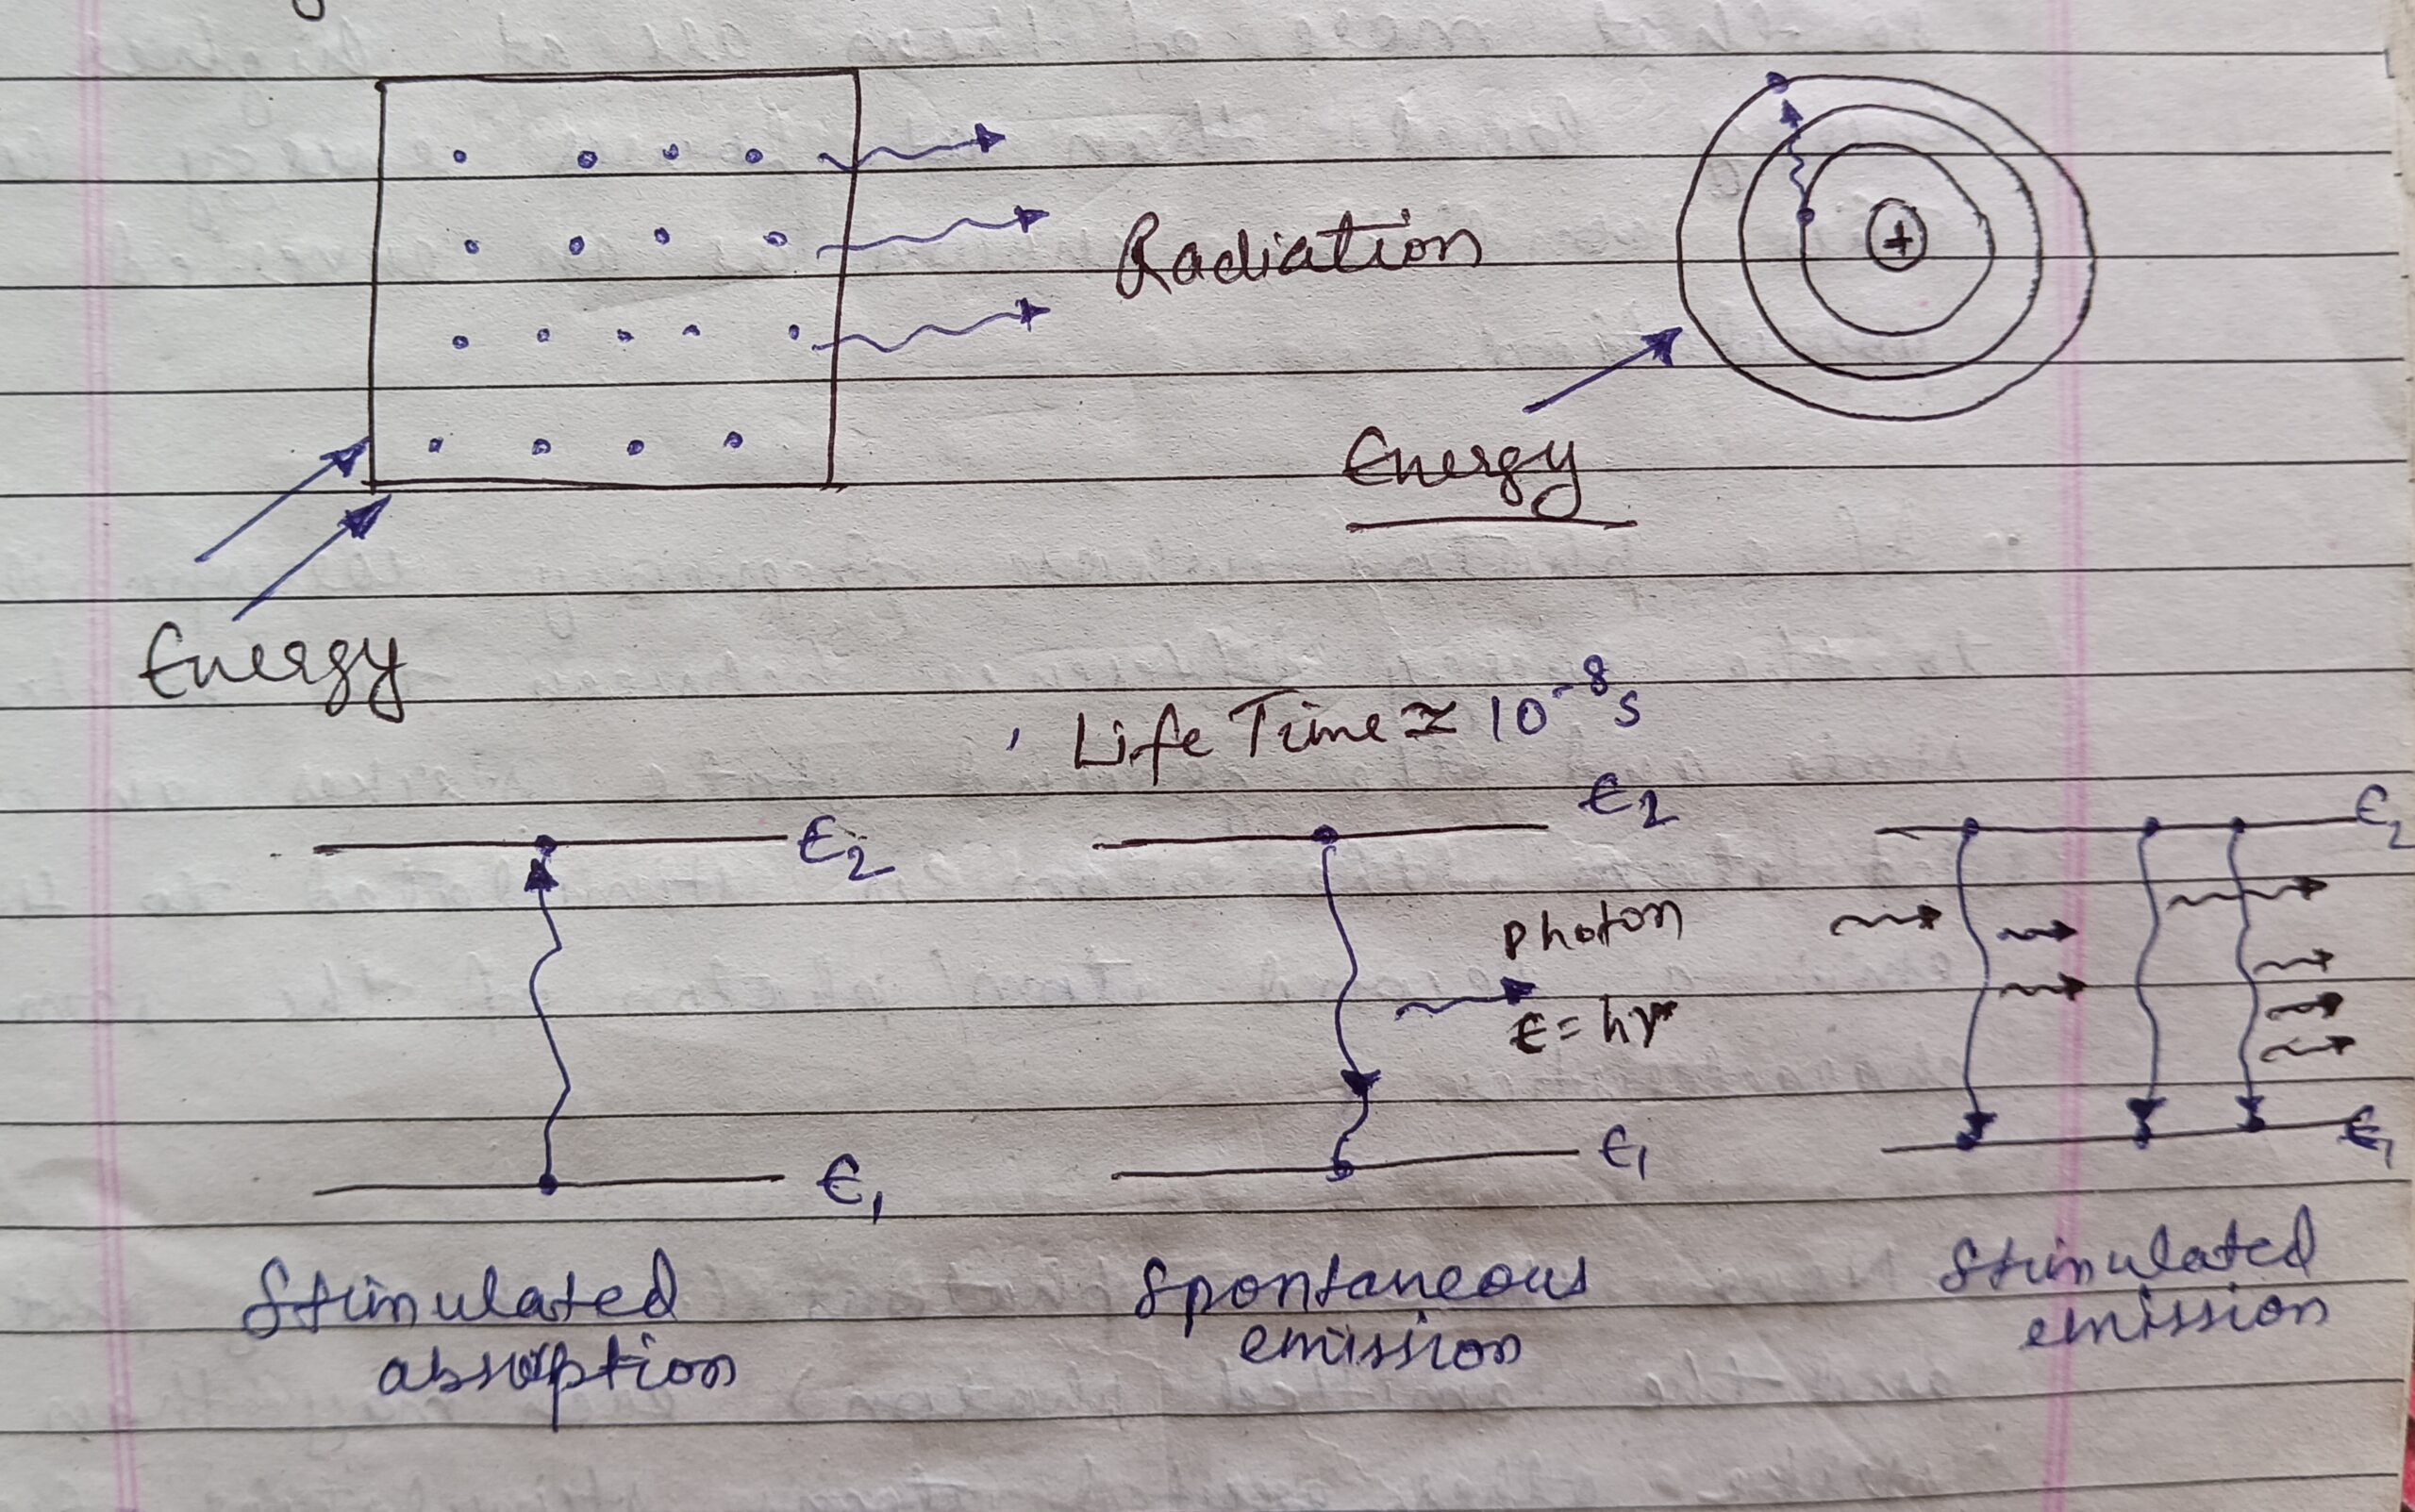 Radiation
+
Energy
Energy
Life Time ≃ 10⁻⁸s
E₂
E₂
E₂
Photon
E = hν
E₁
E₁
E₁
Stimulated
absorption
Spontaneous
emission
Stimulated
emission